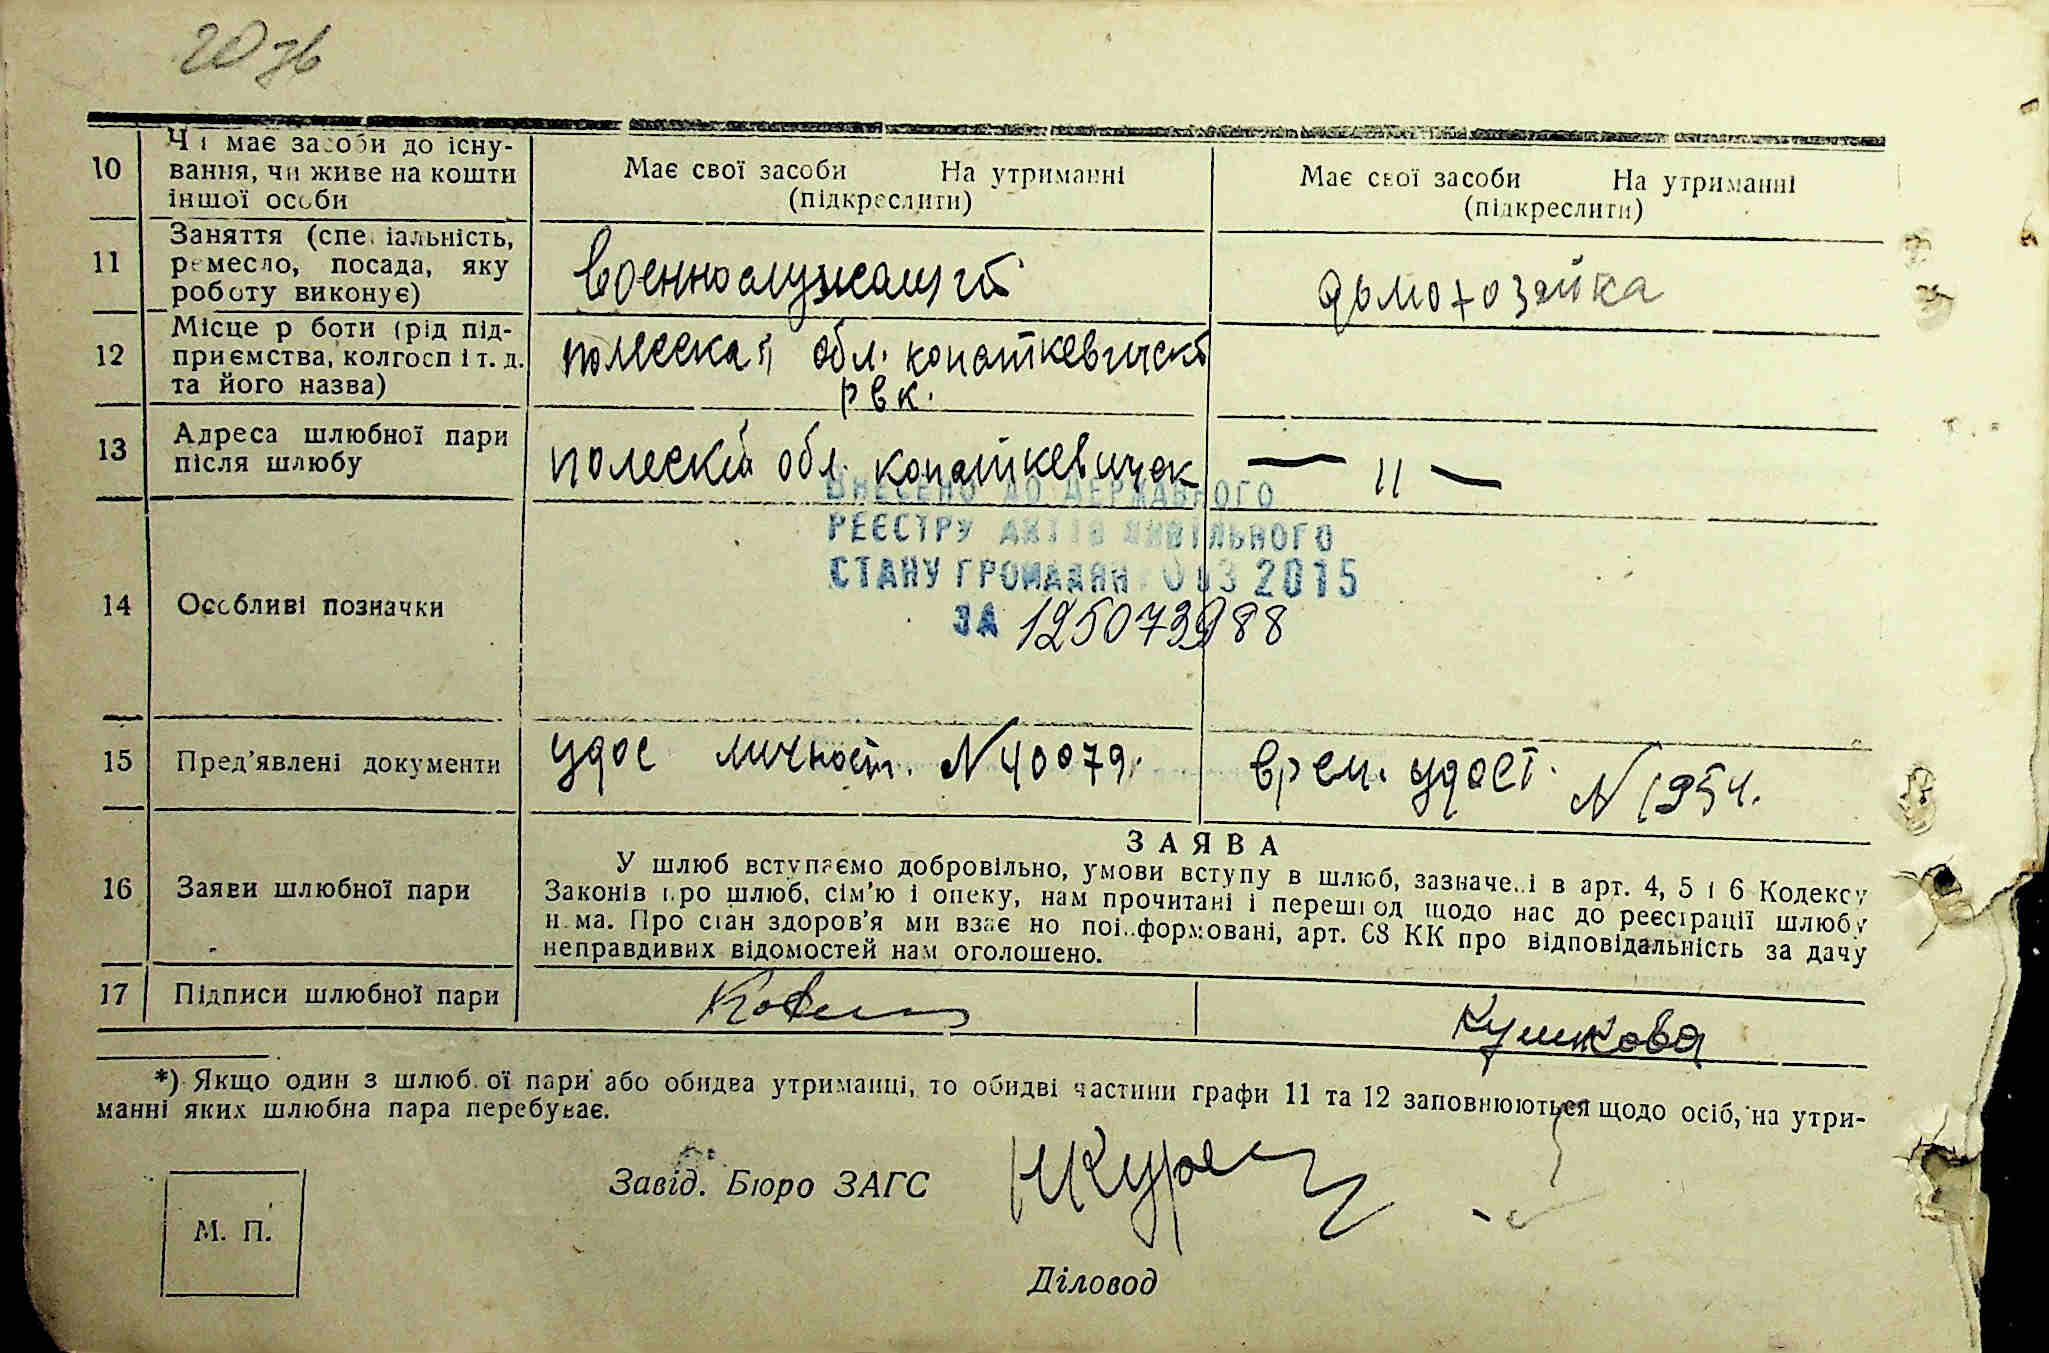 20 зв
10
Чи має засоби до існу-
вання, чи живе на кошти
іншої особи
Має свої засоби На утриманні
(підкреслити)
Має свої засоби На утриманні
(підкреслити)
11
Заняття (спеціальність,
ремесло, посада, яку
роботу виконує)
военнослужащий
домохозяйка
12
Місце роботи (рід під-
приємства, колгосп і т. д.
та його назва)
полесская обл. копаткевичск
рвк.
13
Адреса шлюбної пари
після шлюбу
полеский обл. копаткевичск
— 11 —
ВНЕСЕНО ДО ДЕРЖАВНОГО
РЕЄСТРУ АКТІВ ЦИВІЛЬНОГО
СТАНУ ГРОМАДЯН 03 2015
ЗА 125073988
14
Особливі позначки
15
Пред'явлені документи
удос личност. N 40079.
врем. удост. N 1954.
16
Заяви шлюбної пари
ЗАЯВА
У шлюб вступаємо добровільно, умови вступу в шлюб, зазначені в арт. 4, 5 і 6 Кодексу
Законів про шлюб, сім'ю і опеку, нам прочитані і перешкод щодо нас до реєстрації шлюбу
нема. Про стан здоров'я ми взаємно поінформовані, арт. 68 КК про відповідальність за дачу
неправдивих відомостей нам оголошено.
17
Підписи шлюбної пари
Кушкова
*) Якщо один з шлюбної пари або обидва утриманці, то обидві частини графи 11 та 12 заповнюються щодо осіб, на утри-
манні яких шлюбна пара перебуває.
Завід. Бюро ЗАГС
М. П.
Діловод